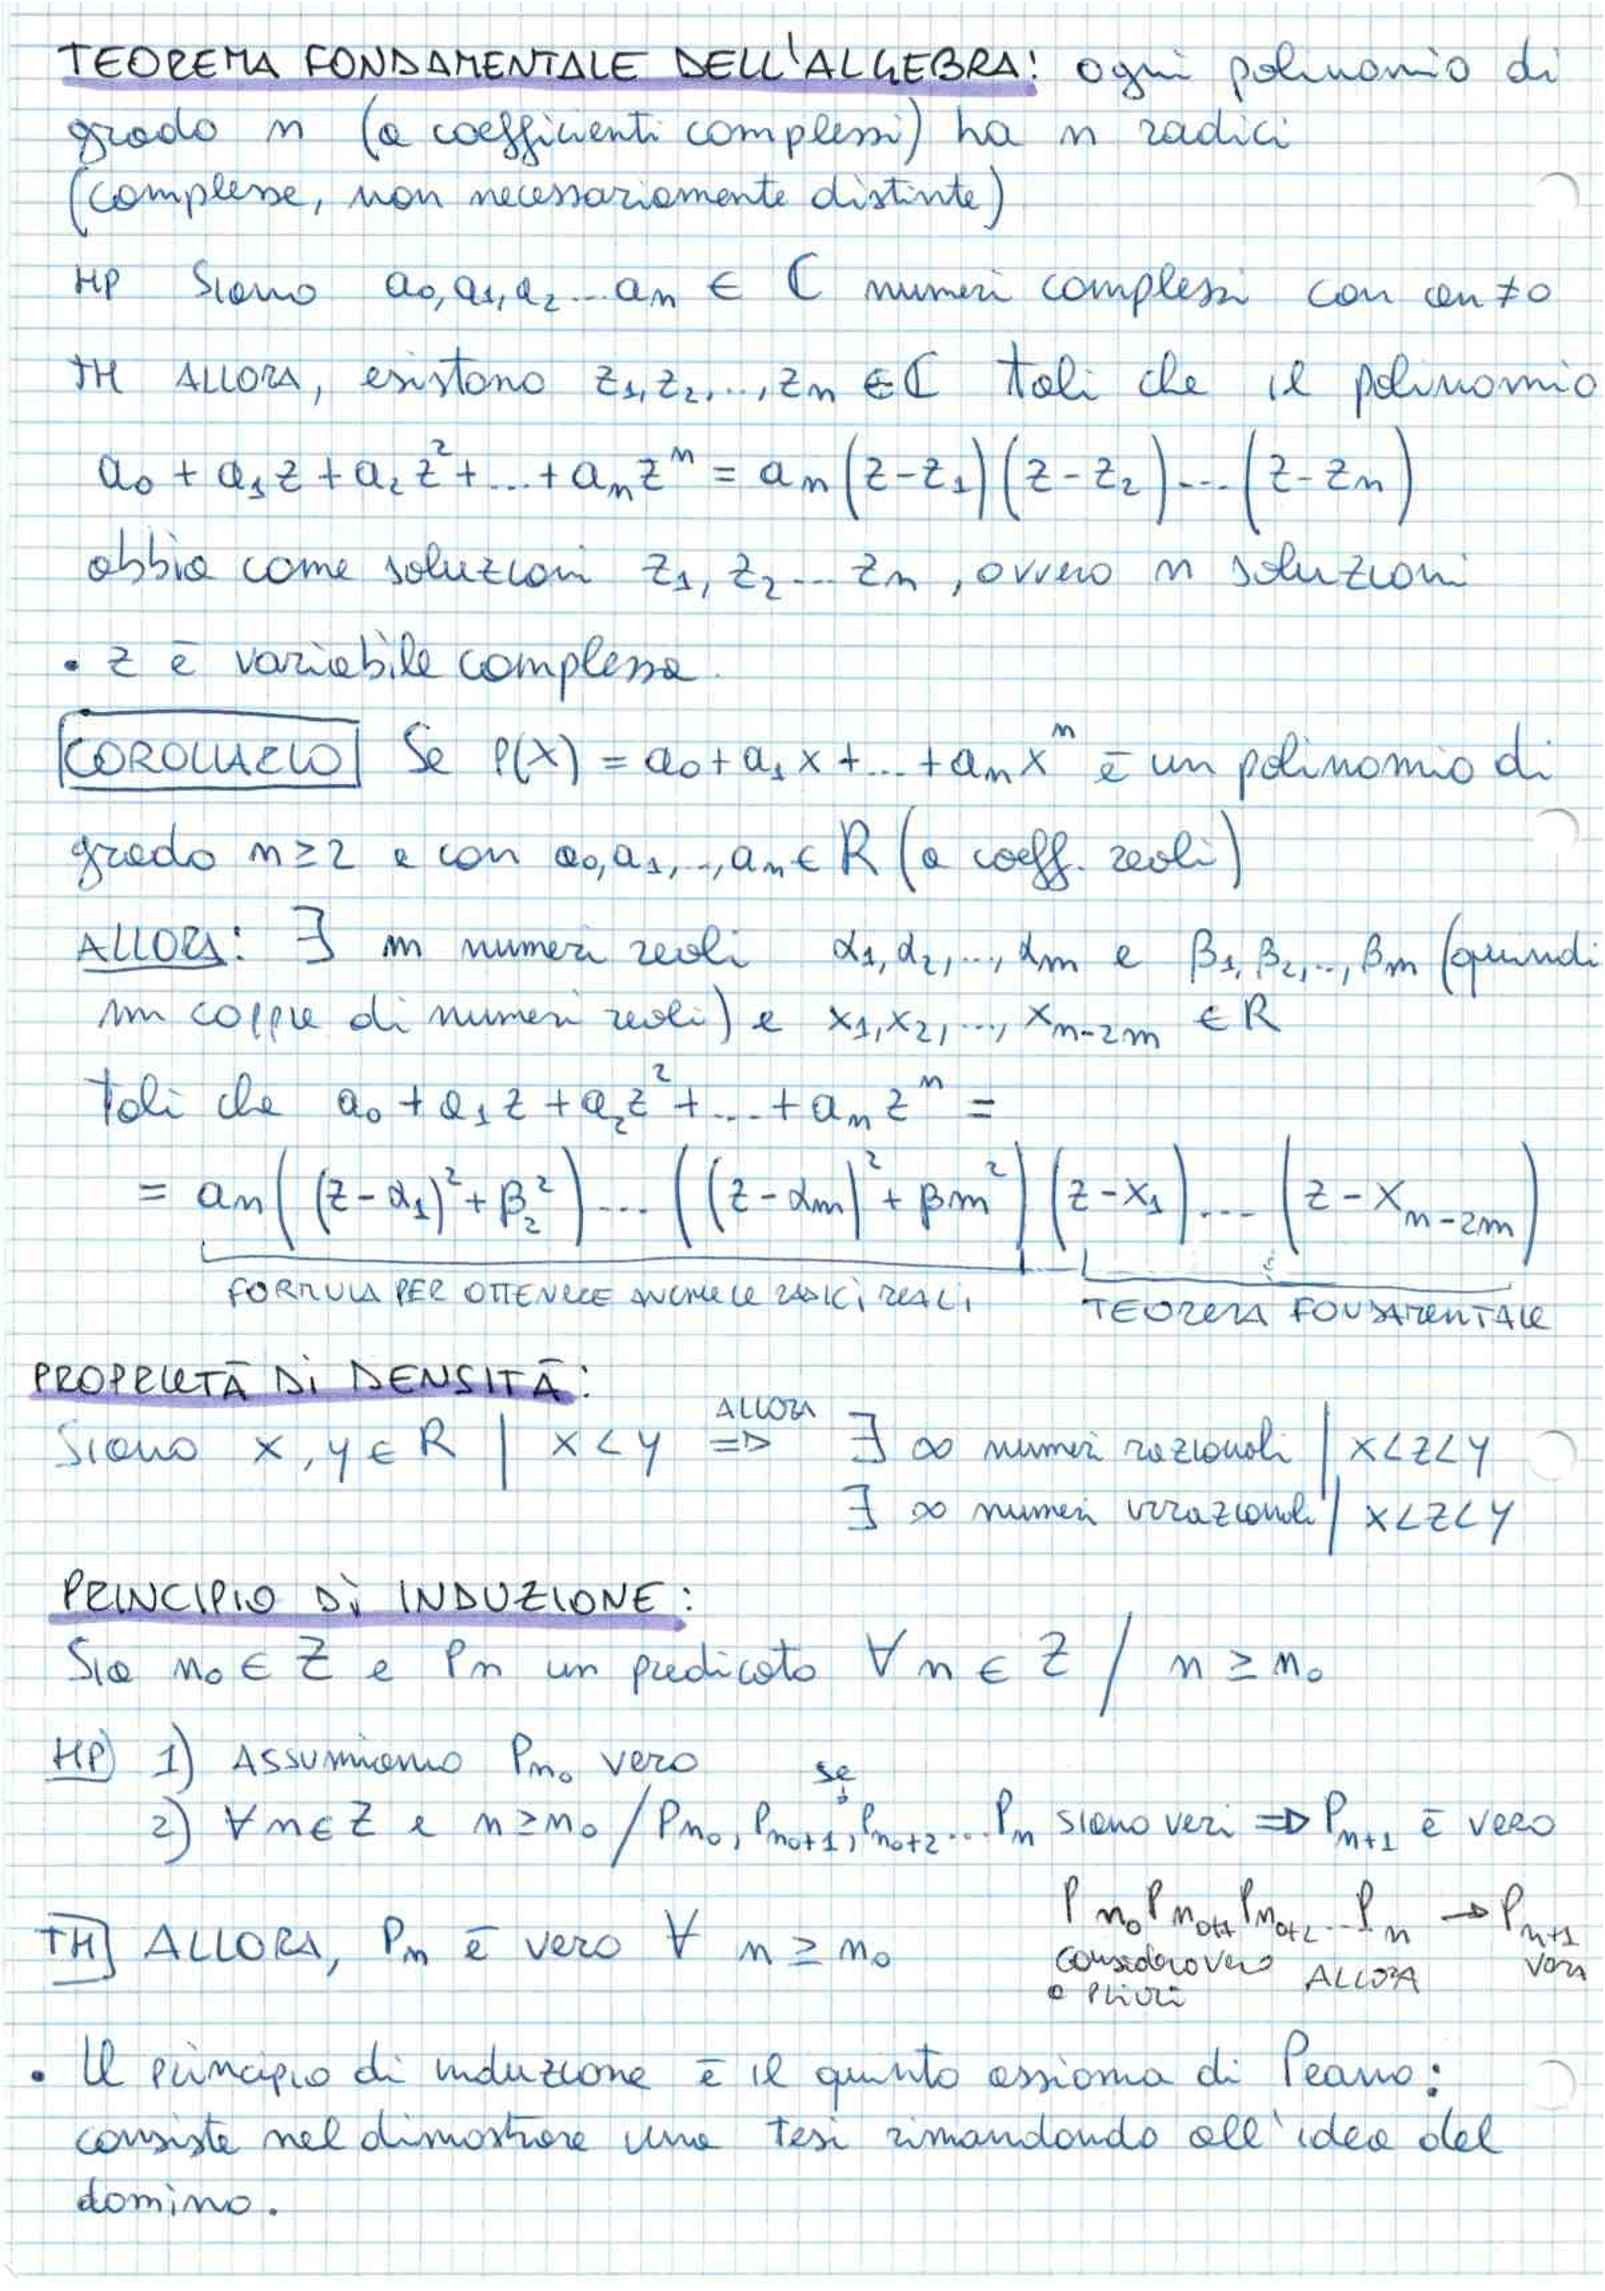 TEOREMA FONDAMENTALE DELL'ALGEBRA: ogni polinomio di
grado n (a coefficienti complessi) ha n radici
(complesse, non necessariamente distinte)
HP Siano a₀, a₁, a₂ ... aₙ ∈ ℂ numeri complessi con aₙ ≠ 0
TH ALLORA, esistono z₁, z₂, ..., zₙ ∈ ℂ tali che il polinomio
a₀ + a₁z + a₂z² + ... + aₙzⁿ = aₙ(z-z₁)(z-z₂)...(z-zₙ)
abbia come soluzioni z₁, z₂ ... zₙ, ovvero n soluzioni
• z è variabile complessa.
COROLLARIO Se P(x) = a₀ + a₁x + ... + aₙxⁿ è un polinomio di
grado n ≥ 2 e con a₀, a₁, .., aₙ ∈ R (a coeff. reali)
ALLORA: ∃ m numeri reali α₁, α₂, ..., αm e β₁, β₂, .., βm (quindi
m coppie di numeri reali) e x₁, x₂, ..., xₙ₋₂ₘ ∈ R
tali che a₀ + a₁z + a₂z² + ... + aₙzⁿ =
= aₙ((z-α₁)² + β₂²)...((z-αm)² + βm²)(z-x₁)...(z-xₙ₋₂ₘ)
FORMULA PER OTTENERE ANCHE LE RADICI REALI TEOREMA FONDAMENTALE
PROPRIETÀ DI DENSITÀ:
Siano x, y ∈ R | x < y ALLORA => ∃ ∞ numeri razionali | x<z<y
∃ ∞ numeri irrazionali | x<z<y
PRINCIPIO DI INDUZIONE:
Sia n₀ ∈ Z e Pn un predicato ∀ n ∈ Z / n ≥ n₀
HP) 1) Assumiamo Pn₀ vero
se
2) ∀ n ∈ Z e n ≥ n₀ / Pn₀, Pn₀+1, Pn₀+2 ... Pn siano veri => Pn+1 è vero
TH] ALLORA, Pn è vero ∀ n ≥ n₀
Pn₀ Pn₀+1 Pn₀+2 ... Pn → Pn+1
considero vero ALLORA vera
a priori
• Il principio di induzione è il quinto assioma di Peano:
consiste nel dimostrare una tesi rimandando all'idea del
domino.